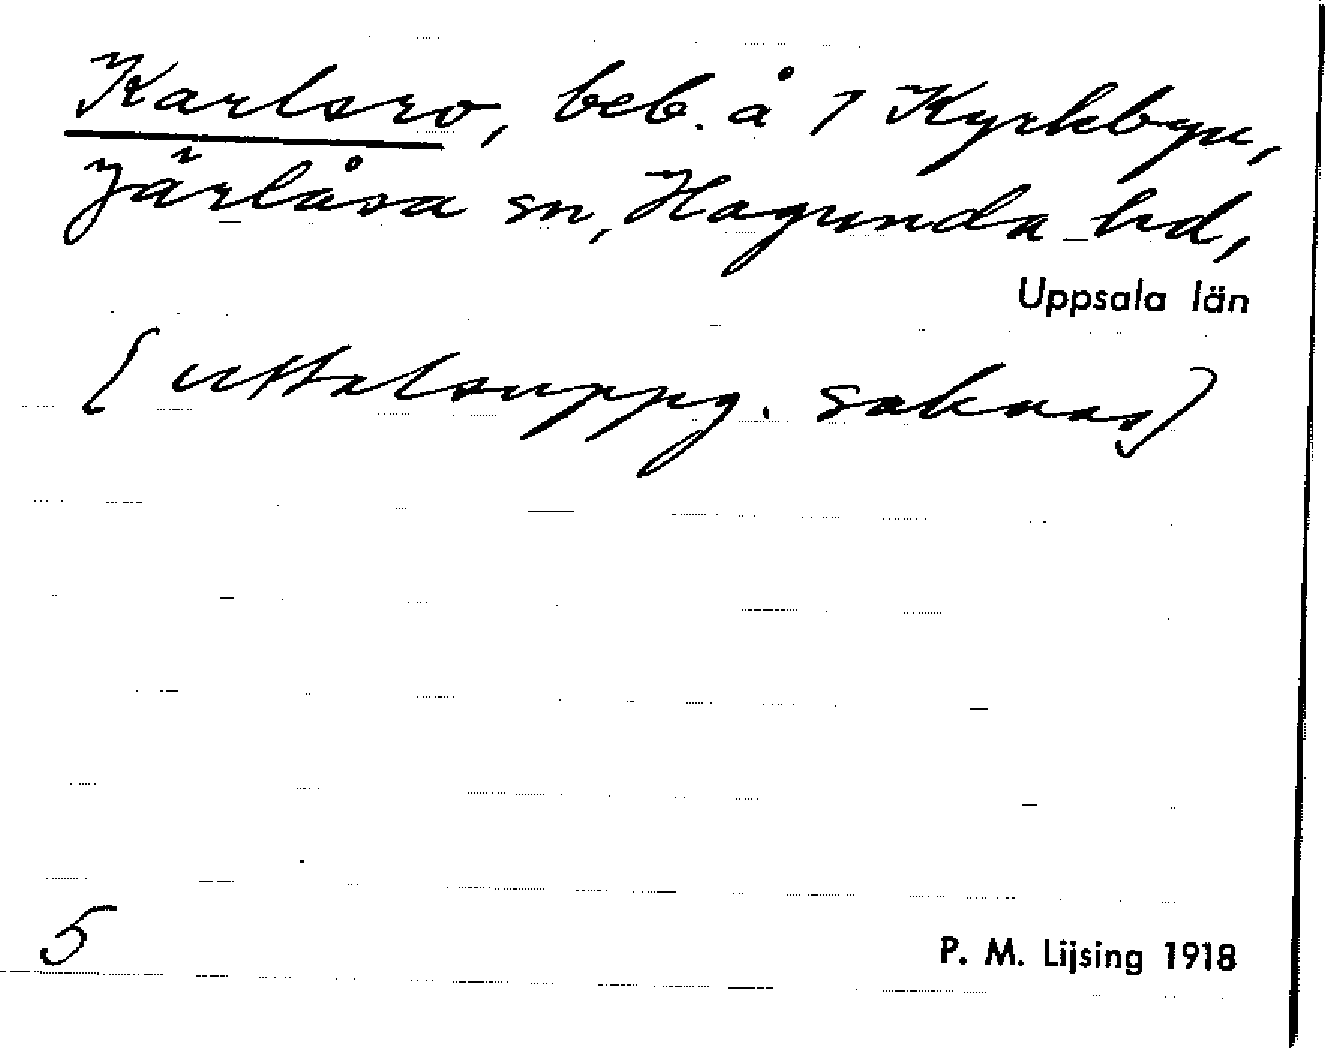 Karlsro, beb. å 1 Kyrkbyn,
Järlåsa sn, Hagunda hd,
Uppsala län
[uttalsuppg. saknas]
5
P. M. Lijsing 1918